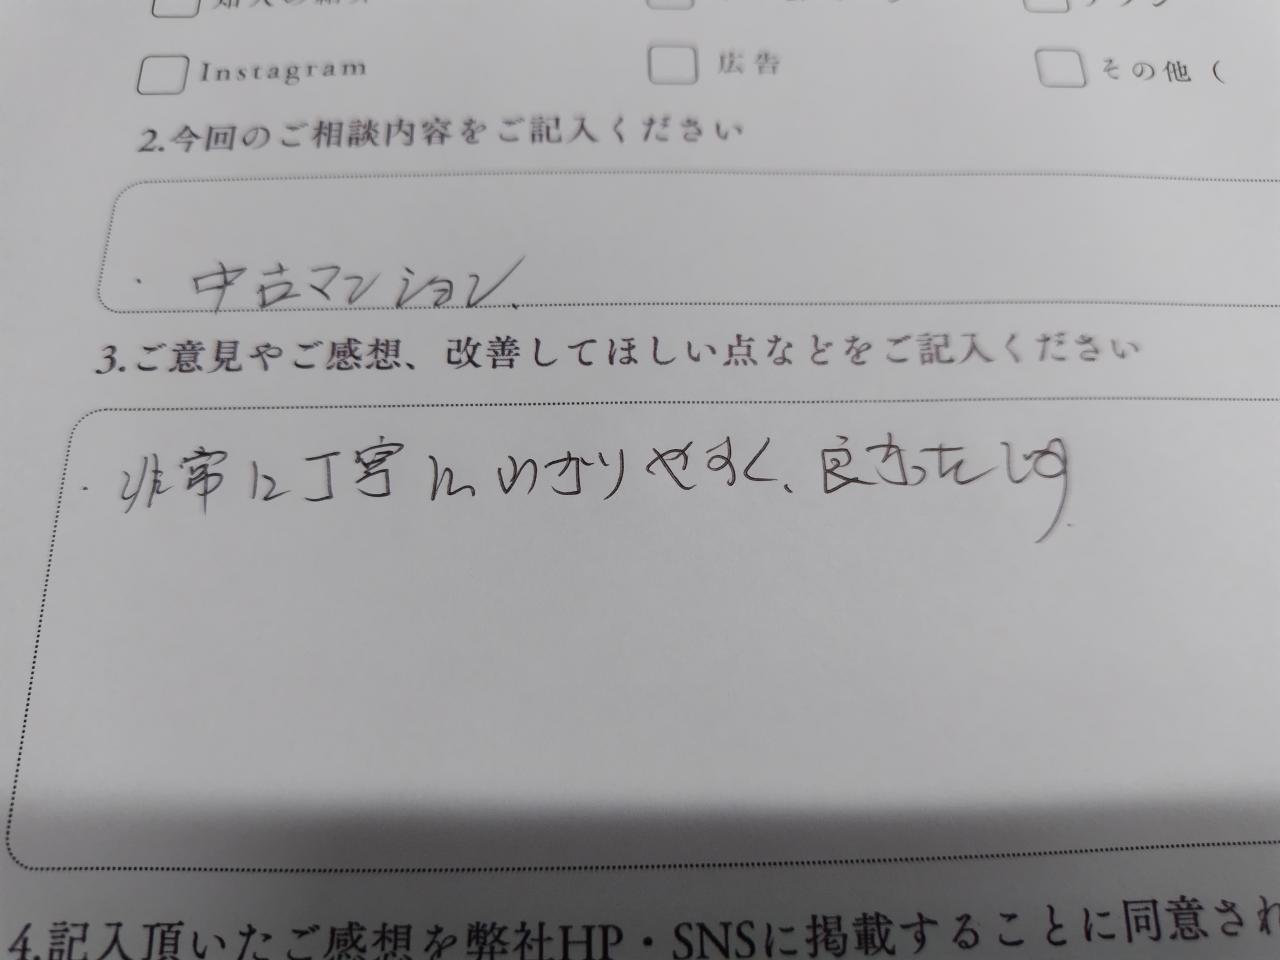 Instagram 広告 その他（
2.今回のご相談内容をご記入ください
・ 中古マンション.
3.ご意見やご感想、改善してほしい点などをご記入ください
・ 非常に丁寧に、わかりやすく、良かったです.
4.記入頂いたご感想を弊社HP・SNSに掲載することに同意され